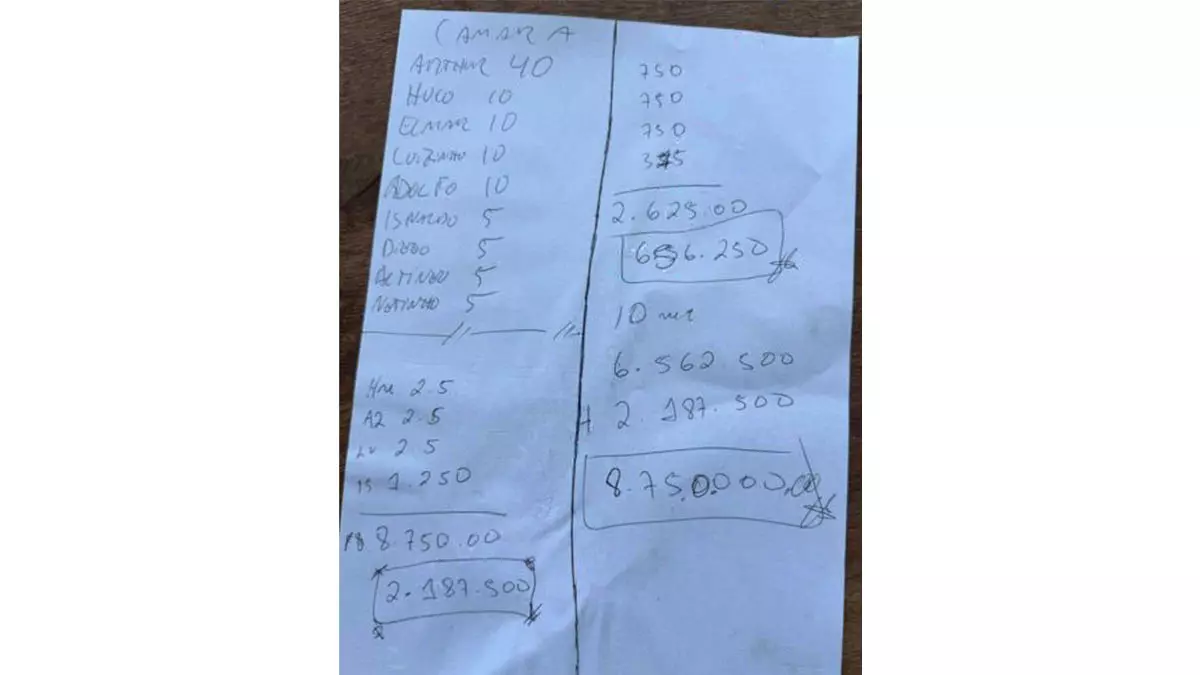 CAMARA
ARTHUR 40
HUGO 10
ELMAR 10
LUIZINHO 10
ADOLFO 10
ISNALDO 5
DIEGO 5
ALTINEU 5
NETINHO 5
A2 2.5
LU 2.5
IS 1.250
8.750.00
2.187.500
750
750
750
375
2.625.00
656.250
10
6.562.500
2.187.500
8.750.000,00